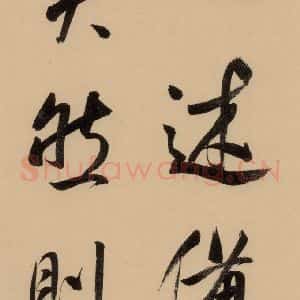 述備
矣然則
Shufawang.CN